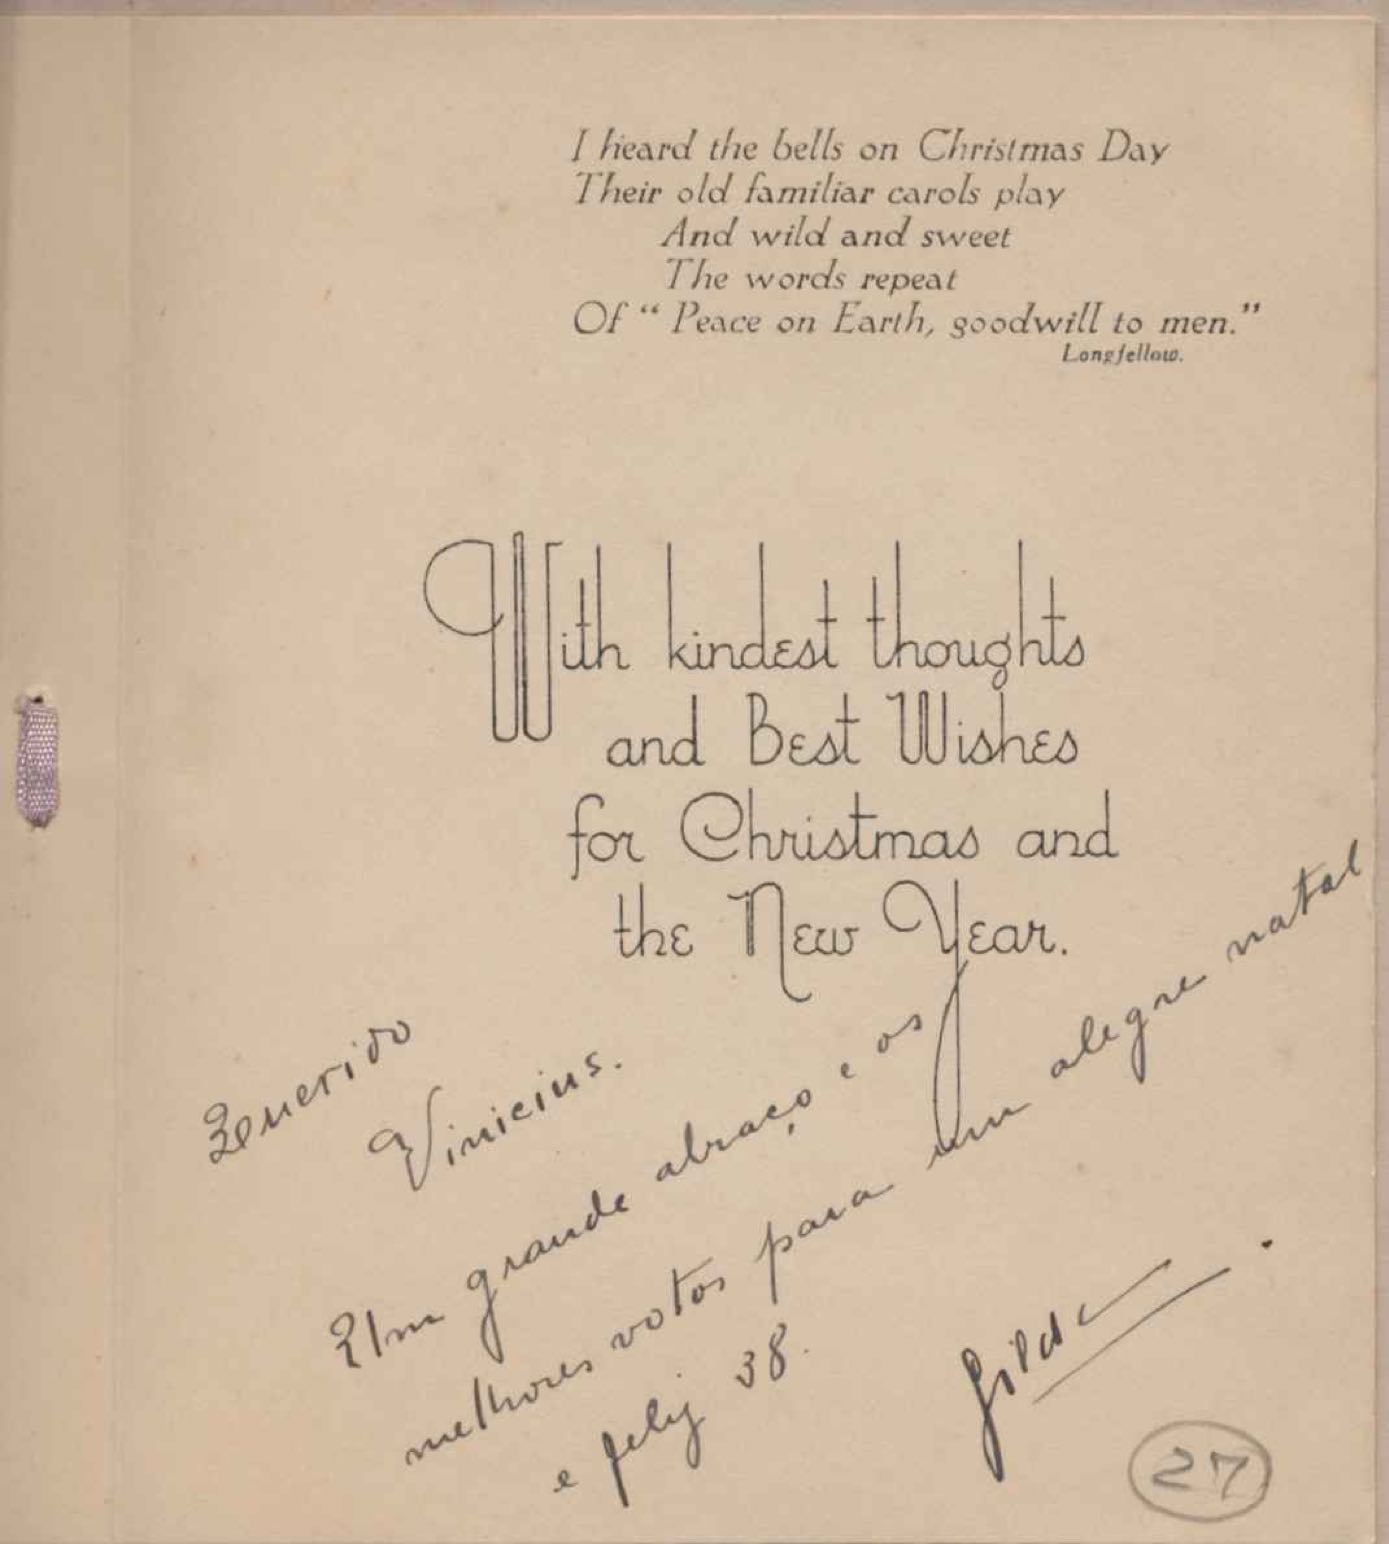 I heard the bells on Christmas Day
Their old familiar carols play
And wild and sweet
The words repeat
Of “ Peace on Earth, goodwill to men.”
Longfellow.
With kindest thoughts
and Best Wishes
for Christmas and
the New Year.
Querido
Vinicius.
Um grande abraço e os
melhores votos para um alegre natal
e feliz 38.
Gilda.
27